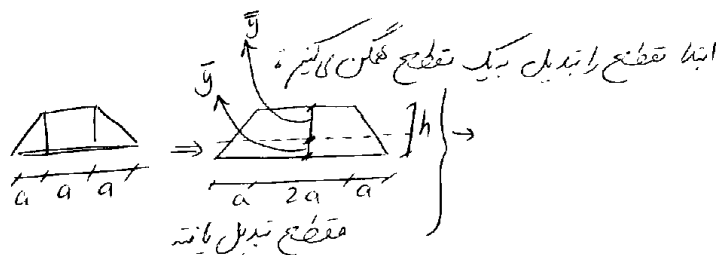 ابتدا مقطع را تبدیل به یک مقطع همگن می‌کنیم :
ȳ
ȳ
h
a a a
⇒
a 2a a
→
مقطع تبدیل یافته